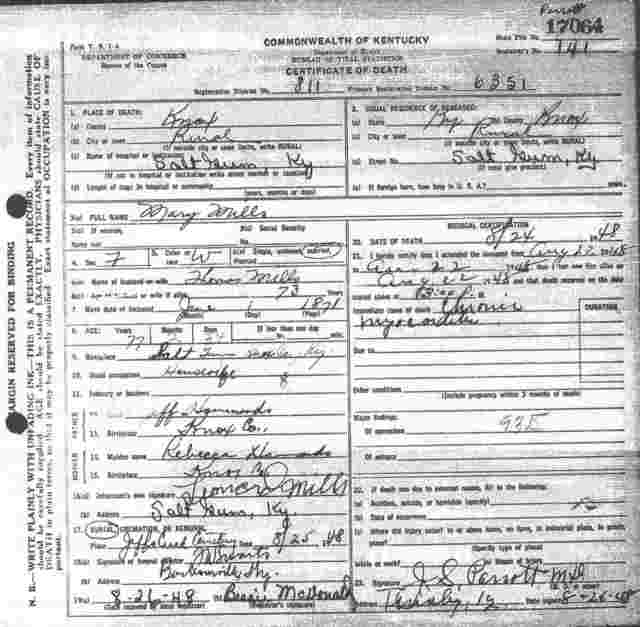 Parrott
17064
COMMONWEALTH OF KENTUCKY
State File No.
Form V. S. 1-A
DEPARTMENT OF COMMERCE
Bureau of the Census
Department of Health
BUREAU OF VITAL STATISTICS
CERTIFICATE OF DEATH
Registrar's No. 141
Registration District No. 811 Primary Registration District No. 6351
1. PLACE OF DEATH:
(a) County Knox
(b) City or town Rural
(If outside city or town limits, write RURAL)
(c) Name of hospital or institution: Salt Gum, Ky
(If not in hospital or institution write street number or location)
(d) Length of stay: In hospital or community
(years, months or days)
2. USUAL RESIDENCE OF DECEASED:
(a) State Ky (b) County Knox
(c) City or town Rural
(If outside city or town limits, write RURAL)
(d) Street No. Salt Gum, Ky
(If rural give precinct)
(e) If foreign born, how long in U. S. A.?
3(a) FULL NAME Mary Mills
3(b) If veteran, name war 3(c) Social Security No.
4. Sex F 5. Color or race W 6(a) Single, widowed, married, divorced Married
6(b) Name of husband or wife Thomas Mills
6(c) Age of husband or wife if alive 73 Years
7. Birth date of deceased June 1 1871
(Month) (Day) (Year)
8. AGE: Years 77 Months 2 Days If less than one day
hr. min.
9. Birthplace Salt Gum Ky.
10. Usual occupation Housewife 8
11. Industry or business
FATHER
12. Name Jeff Hammonds
13. Birthplace Knox Co.,
MOTHER
14. Maiden name Rebecca Hammonds
15. Birthplace Knox Co
16(a) Informant's own signature Mills
(b) Address Salt Gum, Ky.
17. BURIAL, CREMATION OR REMOVAL
Place Cemetery Date 8/25 1948
18(a) Signature of funeral director
(b) Address Barbourville Ky.
19(a) 8-26-48 Bessie McDonald
(Date received by local registrar) (Registrar's signature)
MEDICAL CERTIFICATION
20. DATE OF DEATH 8/24 1948
21. I hereby certify that I attended the deceased from Aug 1948
to Aug 22 1948, that I last saw him alive on
Aug 22 1948 and that death occurred on the date
stated above at M.
Immediate cause of death Chronic
myocarditis
DURATION
Due to
Other conditions
(Include pregnancy within 3 months of death)
Major findings:
Of operations 93E
Of autopsy
22. If death was due to external causes, fill in the following:
(a) Accident, suicide, or homicide (specify)
(b) Date of occurrence
(c) Where did injury occur? In or about home, on farm, in industrial place, in public place?
(Specify type of place)
While at work? (e) Means of injury
23. Signature J S Parrott MD
Address Date signed 8-26-48
MARGIN RESERVED FOR BINDING
N. B.—WRITE PLAINLY WITH UNFADING INK—THIS IS A PERMANENT RECORD. Every item of information
should be carefully supplied. AGE should be stated EXACTLY. PHYSICIANS should state CAUSE OF
DEATH in plain terms, so that it may be properly classified. Exact statement of OCCUPATION is very important.